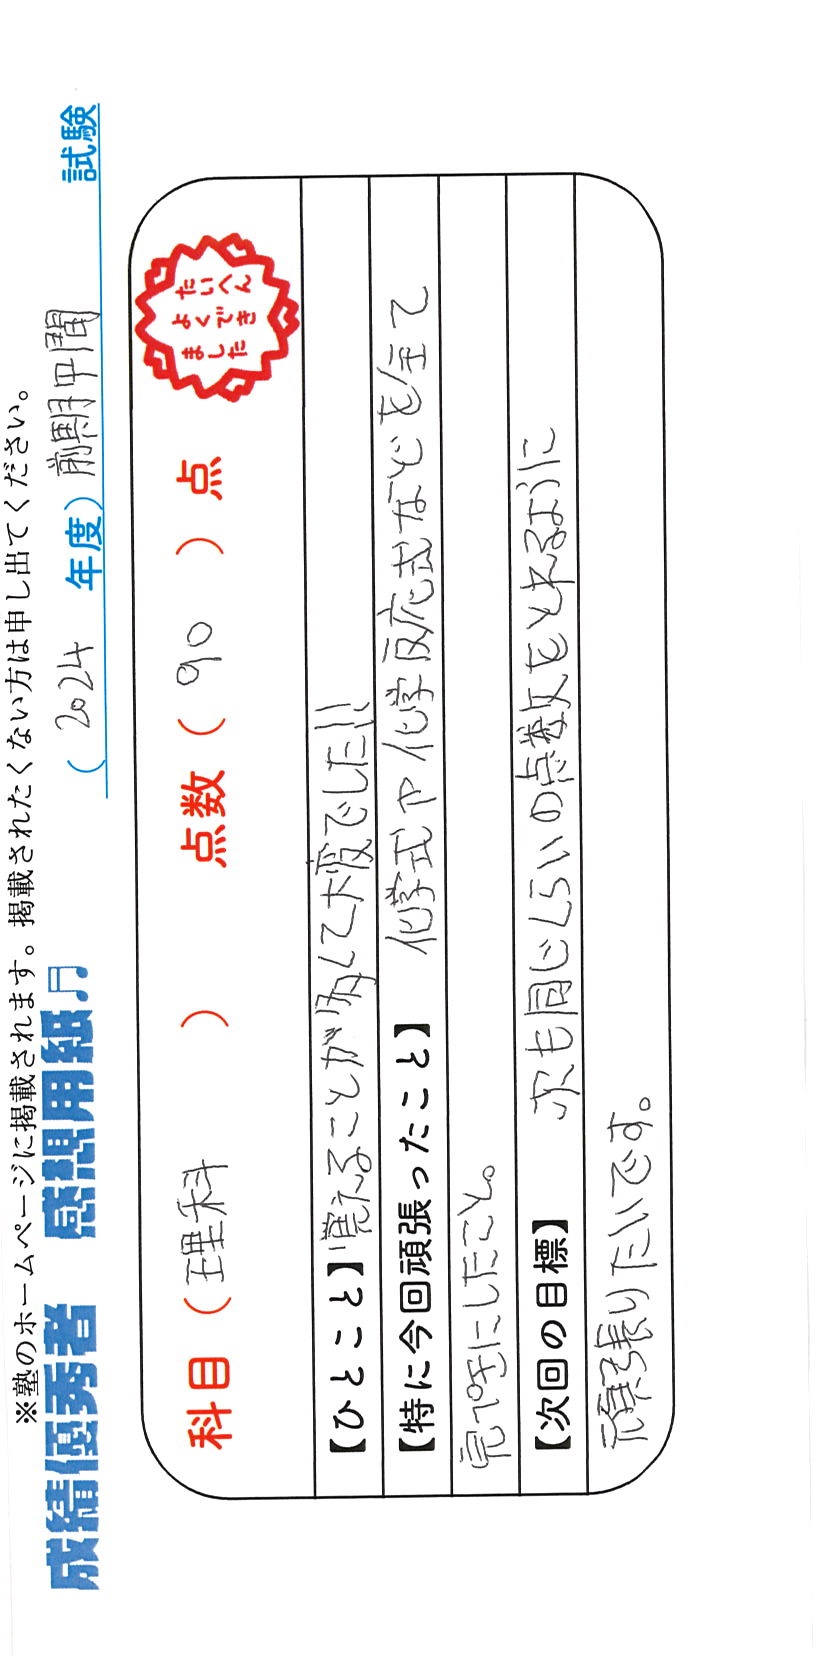 ※塾のホームページに掲載されます。掲載されたくない方は申し出てください。
成績優秀者 感想用紙♫ (2024 年度) 前期中間 試験
科目(理科) 点数(90)点
たいへん
よくでき
ました
【ひとこと】覚えることが多くて大変でした!!
【特に今回頑張ったこと】化学式や化学反応式などを全て
完ぺきにしたこと。
【次回の目標】次も同じくらいの点数をとれるように
頑張りたいです。